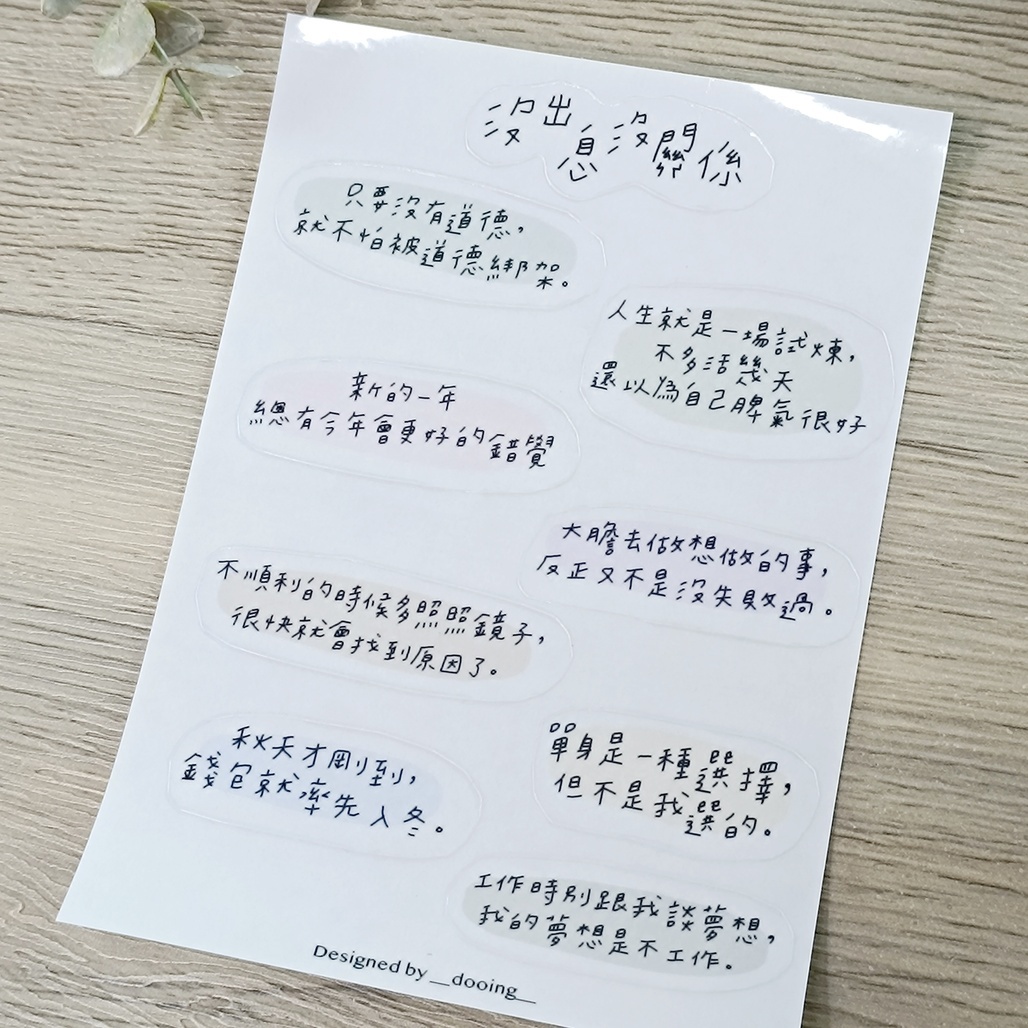 沒出息沒關係
只要沒有道德，
就不怕被道德綁架。
人生就是一場試煉，
不多活幾天
還以為自己脾氣很好
新的一年
總有今年會更好的錯覺
大膽去做想做的事，
反正又不是沒失敗過。
不順利的時候多照照鏡子，
很快就會找到原因了。
秋天才剛到，
錢包就率先入冬。
單身是一種選擇，
但不是我選的。
工作時別跟我談夢想，
我的夢想是不工作。
Designed by __dooing__